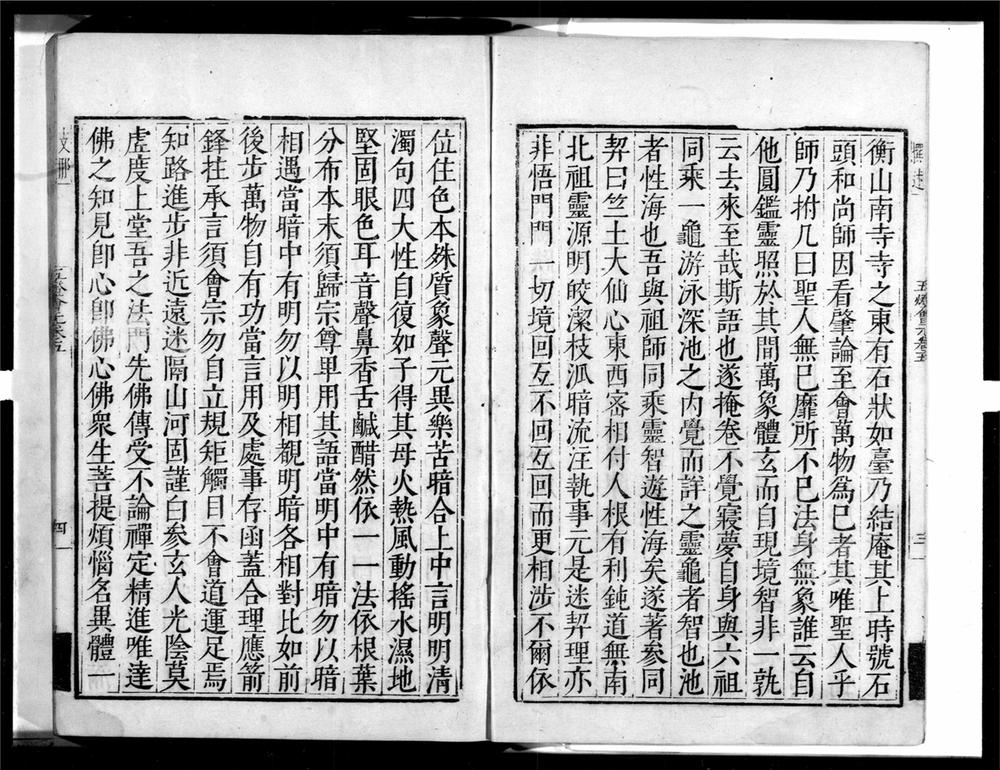 衡山南寺寺之東有石狀如臺乃結庵其上時號石
頭和尚師因看肇論至會萬物為己者其唯聖人乎
師乃拊几曰聖人無已靡所不已法身無象誰云自
他圓鑑靈照於其間萬象體玄而自現境智非一孰
云去來至哉斯語也遂掩卷不覺寢夢自身與六祖
同乘一龜游泳深池之內覺而詳之靈龜者智也池
者性海也吾與祖師同乘靈智遊性海矣遂著參同
契曰竺土大仙心東西密相付人根有利鈍道無南
北祖靈源明皎潔枝泒暗流注執事元是迷契理亦
非悟門門一切境回互不回互回而更相涉不爾依
位住色本殊質象聲元異樂苦暗合上中言明明清
濁句四大性自復如子得其母火熱風動搖水濕地
堅固眼色耳音聲鼻香舌鹹醋然依一一法依根葉
分布本末須歸宗尊卑用其語當明中有暗勿以暗
相遇當暗中有明勿以明相覩明暗各相對比如前
後步萬物自有功當言用及處事存函蓋合理應箭
鋒拄承言須會宗勿自立規矩觸目不會道運足焉
知路進步非近遠迷隔山河固謹白參玄人光陰莫
虛度上堂吾之法門先佛傳受不論禪定精進唯達
佛之知見即心即佛心佛眾生菩提煩惱名異體一
四